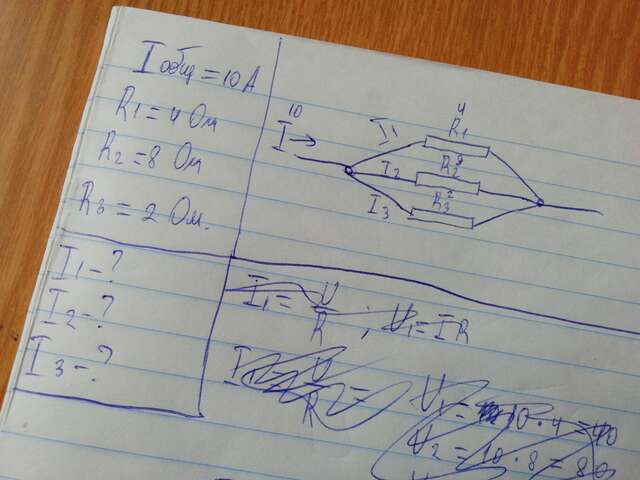 I общ = 10 А
R1 = 4 Ом
R2 = 8 Ом
R3 = 2 Ом.
I1 - ?
I2 - ?
I3 - ?
10
I →
I1
4
R1
I2
8
R2
I3
2
R3
I1 = U/R ; U1 = IR
U1 = 10 · 4 = 40
U2 = 10 · 8 = 80